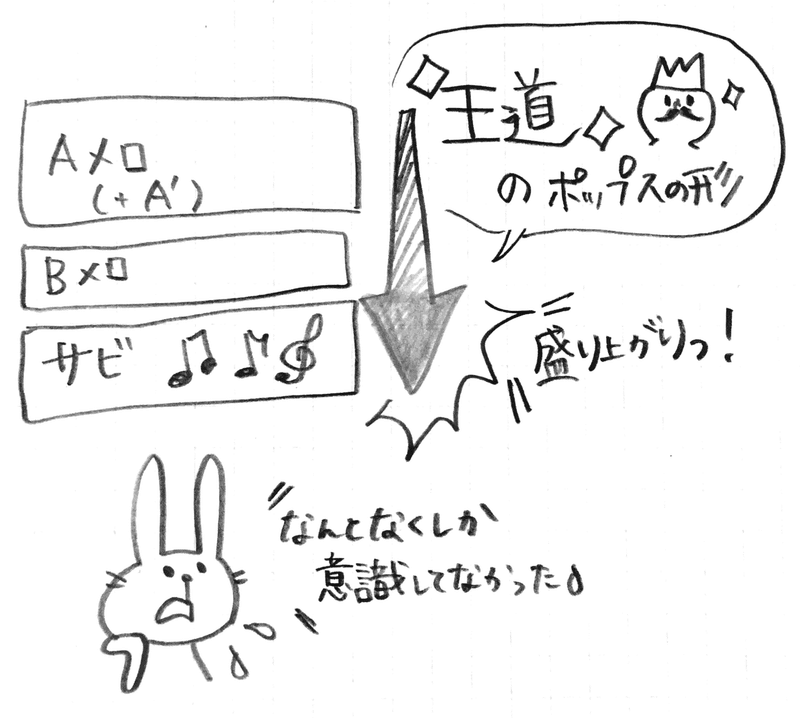 王道
のポップスの形
Aメロ
(+A')
Bメロ
サビ
盛り上がりっ!
なんとなくしか
意識してなかった